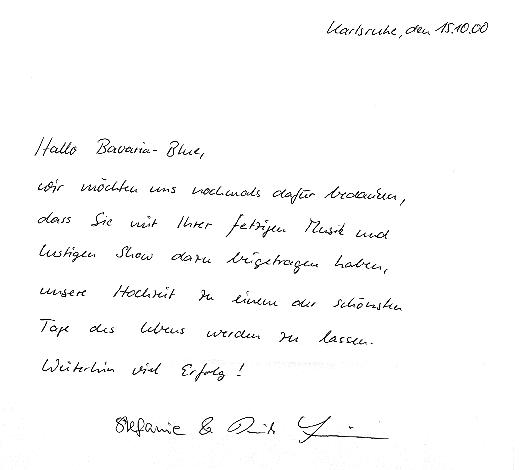 Karlsruhe, den 15.10.00
Hallo Bavaria-Blue,
wir möchten uns nochmals dafür bedanken,
dass Sie mit Ihrer fetzigen Musik und
lustigen Show dazu beigetragen haben,
unsere Hochzeit zu einem der schönsten
Tage des Lebens werden zu lassen.
Weiterhin viel Erfolg!
Stefanie &